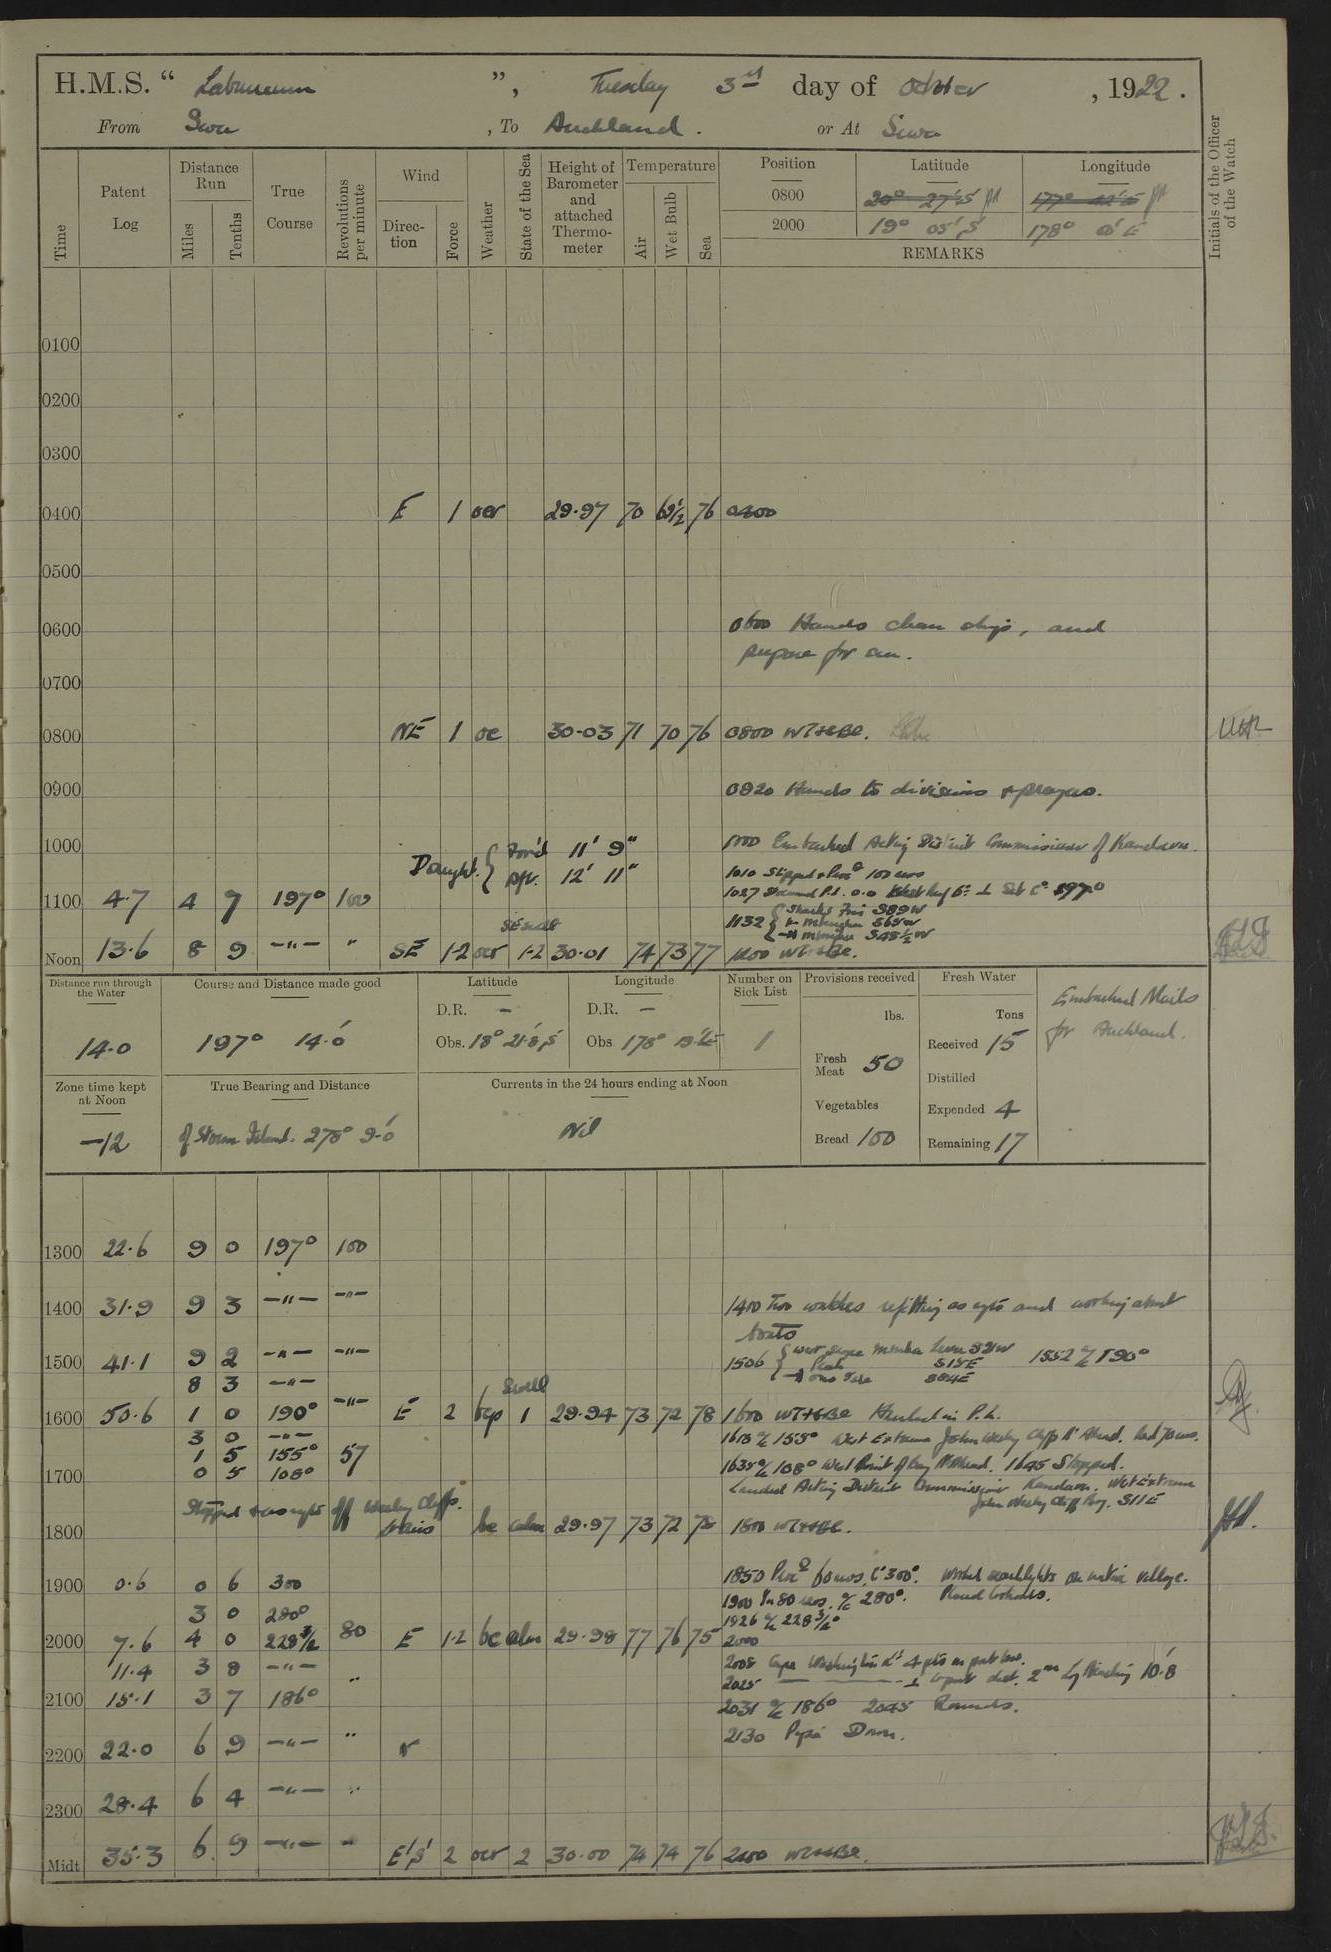 H.M.S. “ Laburnum ”, Tuesday 3rd day of October , 1922 .
From Suva , To Auckland . or At Suva
Time Patent Log Distance Run Miles Tenths True Course Revolutions per minute Wind Direction Force Weather State of the Sea Height of Barometer and attached Thermometer Temperature Air Wet Bulb Sea Position Latitude Longitude Initials of the Officer of the Watch
0800 20° 27'.5 177° 42'.5
2000 19° 05' S 178° 0' E
REMARKS
0100
0200
0300
0400 E 1 ocr 29.97 70 69½ 76 0400
0500
0600 0600 Hands clean ship, and
prepare for sea.
0700
0800 NE 1 oc 30.03 71 70 76 0800 WT+BE.
0900 0920 Hands to divisions + prayers.
1000 1000 Embarked Acting District Commissioner of Kandavu.
Draught { For'd 11' 9"
Aft. 12' 11"
1010 Slipped + Proc'd 100 revs
1100 4.7 4 7 197° 100 1027 Set C° 197°
1132
Noon 13.6 8 9 —"— " SE 1-2 ocr 1-2 30.01 74 73 77 1200 WT+BE.
Distance run through the Water Course and Distance made good Latitude Longitude Number on Sick List Provisions received Fresh Water Embarked Mails
D.R. — D.R. — lbs. Tons for Auckland.
14.0 197° 14.0' Obs. 18° 21'.8 S Obs 178° 1 Fresh Meat 50 Received 15
Zone time kept at Noon True Bearing and Distance Currents in the 24 hours ending at Noon Distilled
Vegetables Expended 4
—12 of Storm Island. 278° 9.0' Nil Bread 100 Remaining 17
1300 22.6 9 0 197° 100
1400 31.9 9 3 —"— —"— 1400 Two watches refitting as req'd and working about
boats
1500 41.1 9 2 —"— —"— 1506 1552 a/c 190°
8 3 —"—
Swell
1600 50.6 1 0 190° —"— E 2 bcp 1 29.94 73 72 78 1600 WT+BE Hauled in P.L.
3 0 —"— 1613 a/c 155° West Extreme John Wesley Cliffs Ahead. Red 70 revs.
1 5 155° 57
1700 0 5 108° 1635 a/c 108° West Point of Bay Ahead. 1645 Stopped.
Landed Acting District Commissioner Kandavu. West Extreme
Stopped + as req'd off Wesley Cliffs. John Wesley Cliff Brg. S11E
1800 bc calm 29.97 73 72 75 1800 WT+BE.
1850 Proc'd 60 revs, C° 300°. Worked searchlights on native village.
1900 0.6 0 6 300 1900 80 revs. a/c 280°. Placed lookouts.
3 0 280° 1926 a/c 228¾°
2000 7.6 4 0 228¾ 80 E 1-2 bc calm 29.98 77 76 75 2000
11.4 3 8 —"— 2008 Cape Washington L' 4 pts on port bow.
2025
2100 15.1 3 7 186° " 2031 a/c 186° 2045 Rounds.
2130 Pipe Down.
2200 22.0 6 9 —"— "
2300 28.4 6 4 —"— "
Midt 35.3 6 9 —"— " E'S' 2 ocr 2 30.00 74 74 76 2400 WT+BE.